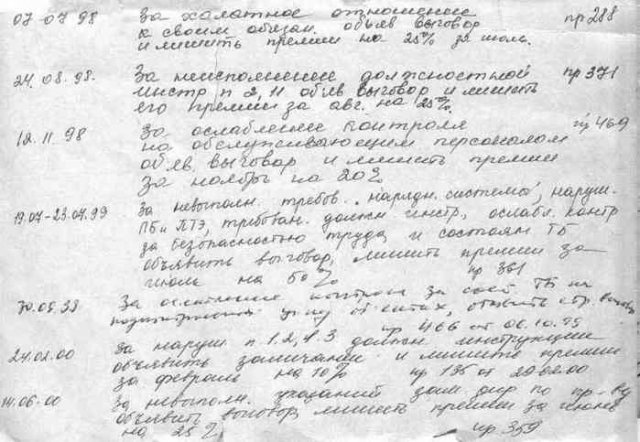 07.07.98 За халатное отношение пр 288
к своим обязан. объяв выговор
и лишить премии на 25% за июль.
24.08.98. За неисполнение должностной пр 371
инстр п 2, 11 объяв выговор и лишить
его премии за авг. на 25%.
12.11.98 За ослабление контроля пр 469
на обслуживающим персоналом
объяв выговор и лишить премии
за ноябрь на 20%
19.07-23.07.99 За невыполн. требов. „нарядн. система", наруш.
ПБ и ПТЭ, требован. должн инстр, ослабл. контр
за безопасностью труда и состоян ТБ
объявить выговор, лишить премии за
июль на 50% пр 361
За ослабление контроля за сост ТБ на
объявить выговор
пр 466 от 06.10.99
24.02.00 За наруш. п 1.2, 1.3 должн инструкции
объявить замечание и лишить премии
за февраль на 10% пр 135 от 29.02.00
14.06.00 За невыполн. указаний зам дир по пр-ву
объявить выговор, лишить премии за июнь
на 25% пр 359